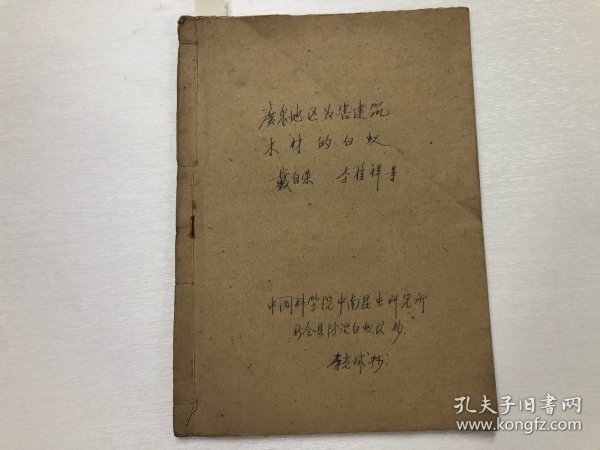 廣东地区为害建筑
木材的白蚁
戴自荣 李桂祥 等
中国科学院中南昆虫研究所
新会县防治白蚁队 抄
李光球 抄
孔夫子旧书网
www.kongfz.com